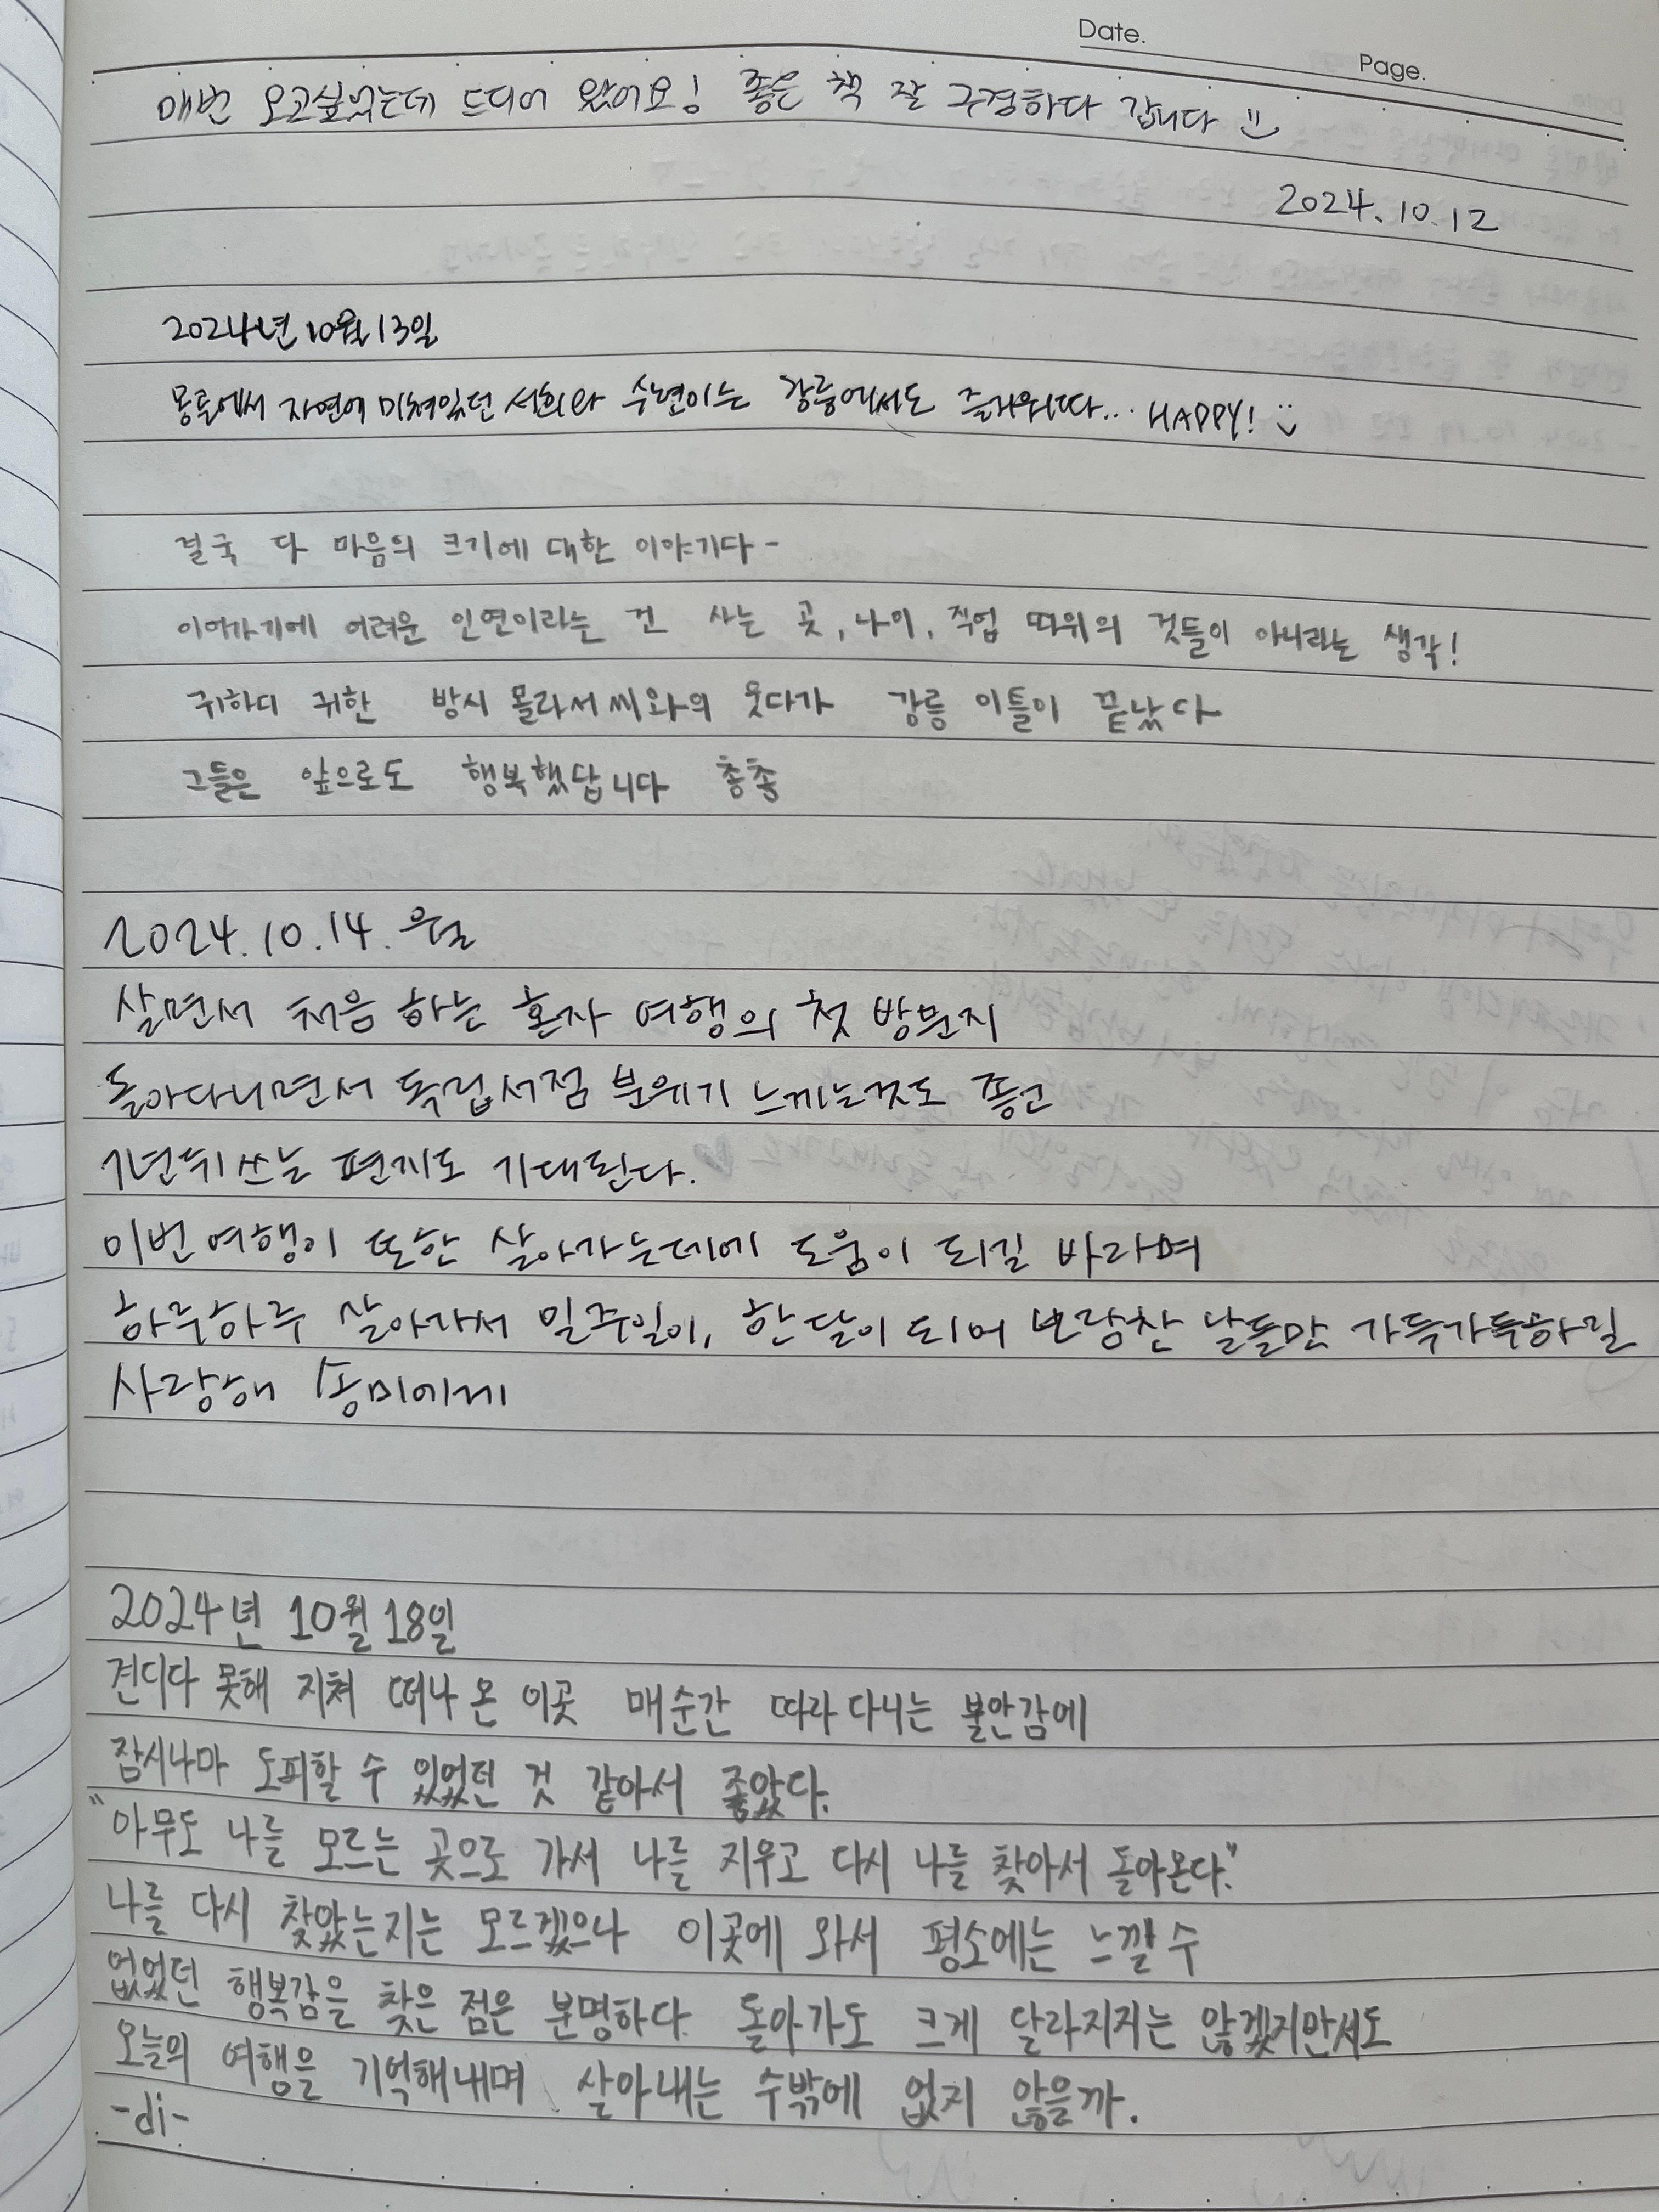 Date.
Page.
매번 오고싶었는데 드디어 왔어요! 좋은 책 잘 구경하다 갑니다 :)
2024. 10. 12
2024년 10월 13일
몽골에서 자연에 미쳐있던 서희와 수연이는 강릉에서도 즐거워따... HAPPY! :)
결국 다 마음의 크기에 대한 이야기다-
이어가기에 어려운 인연이라는 건 사는 곳, 나이, 직업 따위의 것들이 아니라는 생각!
귀하디 귀한 방시 몰라서씨와의 웃다가 강릉 이틀이 끝났다
그들은 앞으로도 행복했답니다 총총
2024. 10. 14. 월
살면서 처음 하는 혼자 여행의 첫 방문지
돌아다니면서 독립서점 분위기 느끼는것도 좋고
1년뒤 쓰는 편지도 기대된다.
이번 여행이 또한 살아가는데에 도움이 되길 바라며
하루하루 살아가서 일주일이, 한달이 되어 보람찬 날들만 가득가득하길
사랑해 송미에게
2024년 10월 18일
견디다 못해 지쳐 떠나 온 이곳 매순간 따라 다니는 불안감에
잠시나마 도피할 수 있었던 것 같아서 좋았다.
"아무도 나를 모르는 곳으로 가서 나를 지우고 다시 나를 찾아서 돌아온다."
나를 다시 찾았는지는 모르겠으나 이곳에 와서 평소에는 느낄 수
없었던 행복감을 찾은 점은 분명하다. 돌아가도 크게 달라지지는 않겠지만서도
오늘의 여행을 기억해내며 살아내는 수밖에 없지 않을까.
-di-